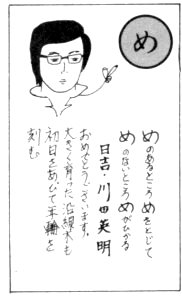 め
めのあるところめをとじて
めのないところめがひかる
日吉・川田英明
おめでとうございます。
大きく育った沿線木も
初日をあびて年輪を
刻む